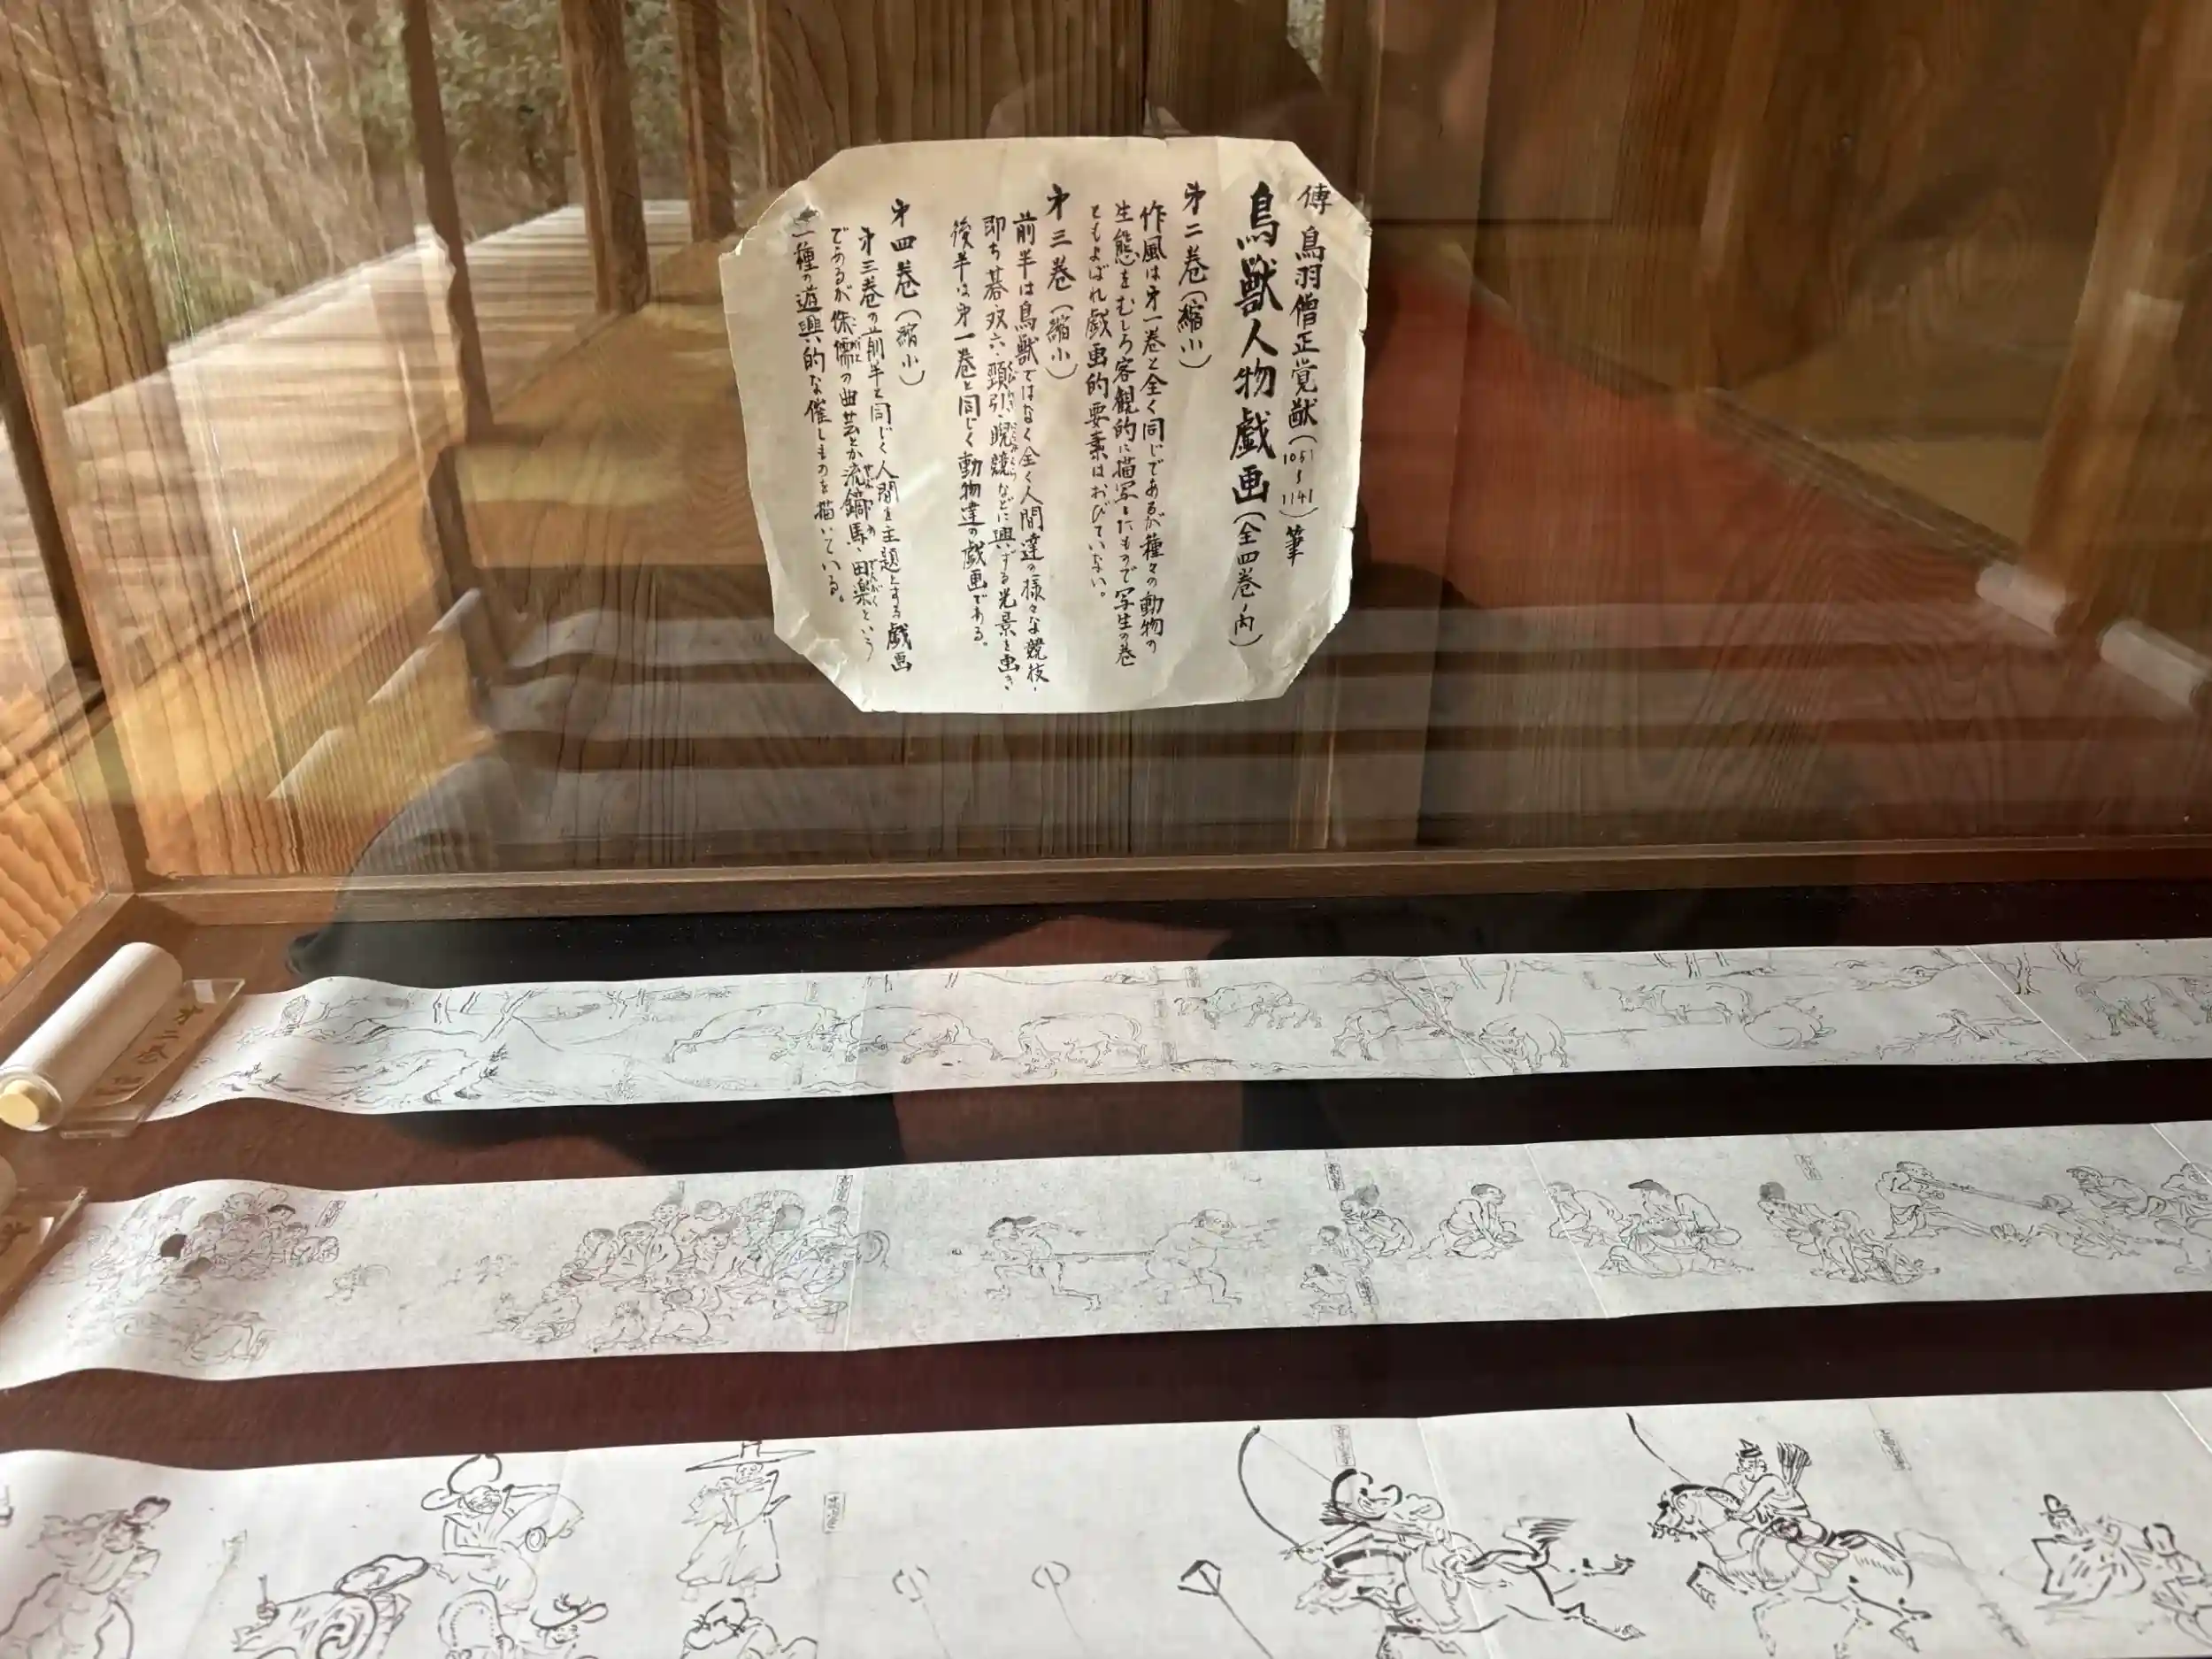 傳 鳥羽僧正覚猷(1051〜1141)筆
鳥獣人物戯画(全四巻ノ内)
㐧二巻(縮小)
作風は㐧一巻と全く同じであるが種々の動物の
生態をむしろ客観的に描写したもので写生の巻
ともよばれ戯画的要素はおびていない。
㐧三巻(縮小)
前半は鳥獣ではなく全く人間達の様々な競技、
即ち碁・双六・頸引・睨競などに興ずる光景を画き、
後半は㐧一巻と同じく動物達の戯画である。
㐧四巻(縮小)
㐧三巻の前半と同じく人間を主題とする戯画
であるが侏儒の曲芸とか流鏑馬・田楽という
一種の遊興的な催しものを描いている。